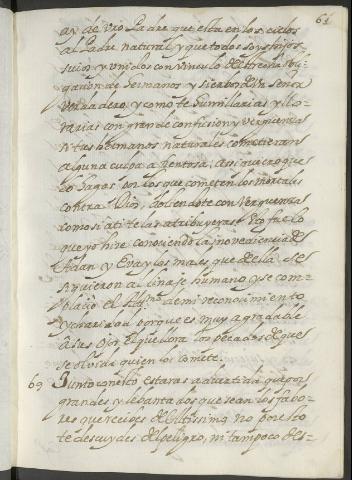 61
ay de Vro Padre que esta en los cielos
al Padre natural, y que todos soys hijos
suios y unidos con vinculo de estrecha obli-
gacion de hermanos y siervos de un señor
verdadero, y como te humillarias y llo-
rarias con grande confusion y verguenza
si tus hermanos naturales cometieran
alguna culpa afrentosa, asi quiero que
lo hagas por los que cometen los mortales
contra Dios, doliendote con verguenza
como si a ti te las atribuyeras. Esto fue lo
que yo hize conociendo la inovediencia de
Adan y Eva y los males que de ella se
siguieron al linaje humano y se com-
placio el Altmo de mi reconocimiento
y charidad porque es muy agradable
a sus ojos el que llora los pecados de que
se olvida quien los comete.
69 Junto con esto estaras advertida que por
grandes y lebantados que sean los fabo-
res que recives del Altissimo no por esto
te descuydes del peligro, ni tampoco des-